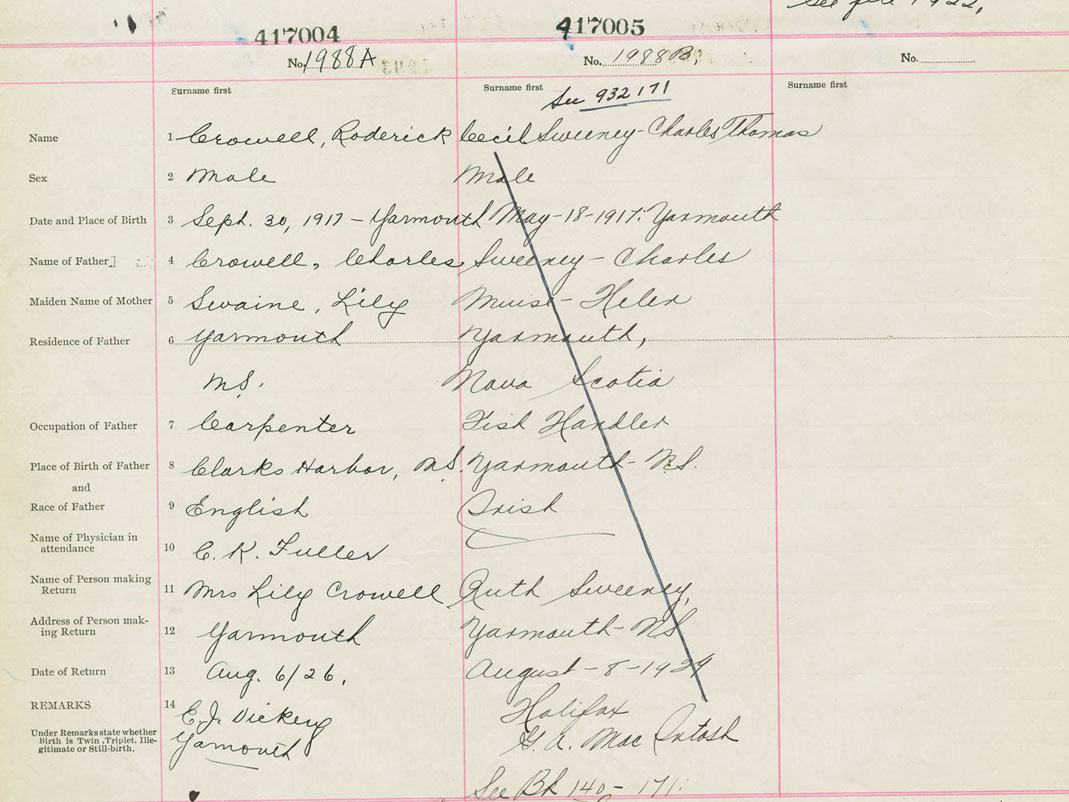 See file 1922,
417004 417005
No. 1988A No. 1988B, No.
Surname first Surname first Surname first
See 932171
Name 1 Crowell, Roderick Cecil Sweeney - Charles Thomas
Sex 2 Male Male
Date and Place of Birth 3 Sept. 30, 1917 - Yarmouth May-18-1917. Yarmouth
Name of Father 4 Crowell, Charles Sweeney - Charles
Maiden Name of Mother 5 Swaine, Lily Muise - Helen
Residence of Father 6 Yarmouth Yarmouth,
N.S. Nova Scotia
Occupation of Father 7 Carpenter Fish Handler
Place of Birth of Father 8 Clarks Harbor, N.S. Yarmouth - N.S.
and
Race of Father 9 English Irish
Name of Physician in
attendance 10 C. K. Fuller
Name of Person making
Return 11 Mrs Lily Crowell Ruth Sweeney,
Address of Person mak-
ing Return 12 Yarmouth Yarmouth - NS
Date of Return 13 Aug. 6/26. August - 8 - 1924
REMARKS 14 C.J. Dickey Halifax
Under Remarks state whether
Birth is Twin, Triplet, Ille-
gitimate or Still-birth. Yarmouth G. A. MacIntosh
See Bk 140 - 171.